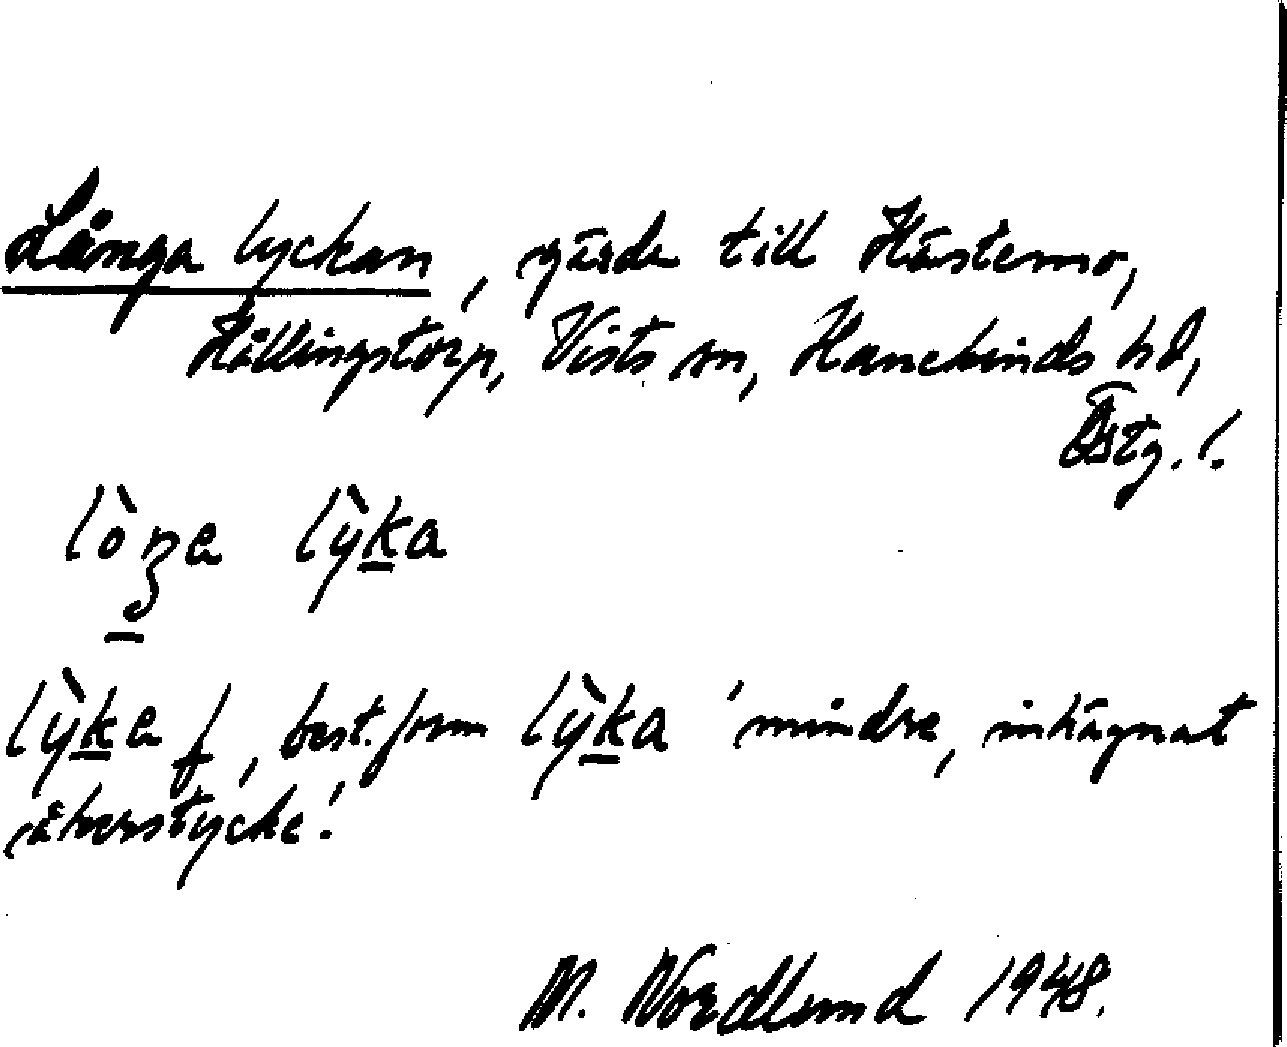 Långa lyckan, gärde till Hästemo,
Hällingstorp, Vists sn, Hanekinds hd,
Östg. l.
lòŋa lỳka
lỳka f, best. form lỳka 'mindre, inhägnat
åkerstycke'.
M. Nordlund 1948.